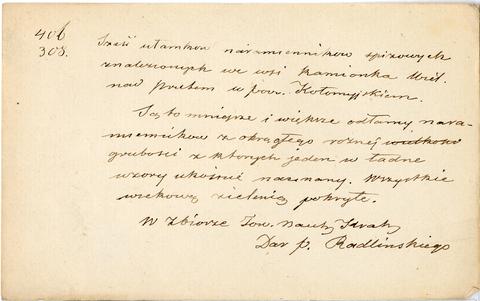 406
308.
Sześć ułamków naramienników spiżowych
znalezionych we wsi Kamionka Wiel.
nad Prutem w pow. Kołomyjskiem.
Są to mniejsze i większe odłamy nara-
mienników z okrągłego rożnej wielkości
grubości z których jeden w ładne
wzory ukośnie nacinany. Wszystkie
wiekową zielenią pokryte.
W zbiorze Tow. Nauk. Krak.
Dar p. Radlińskiego